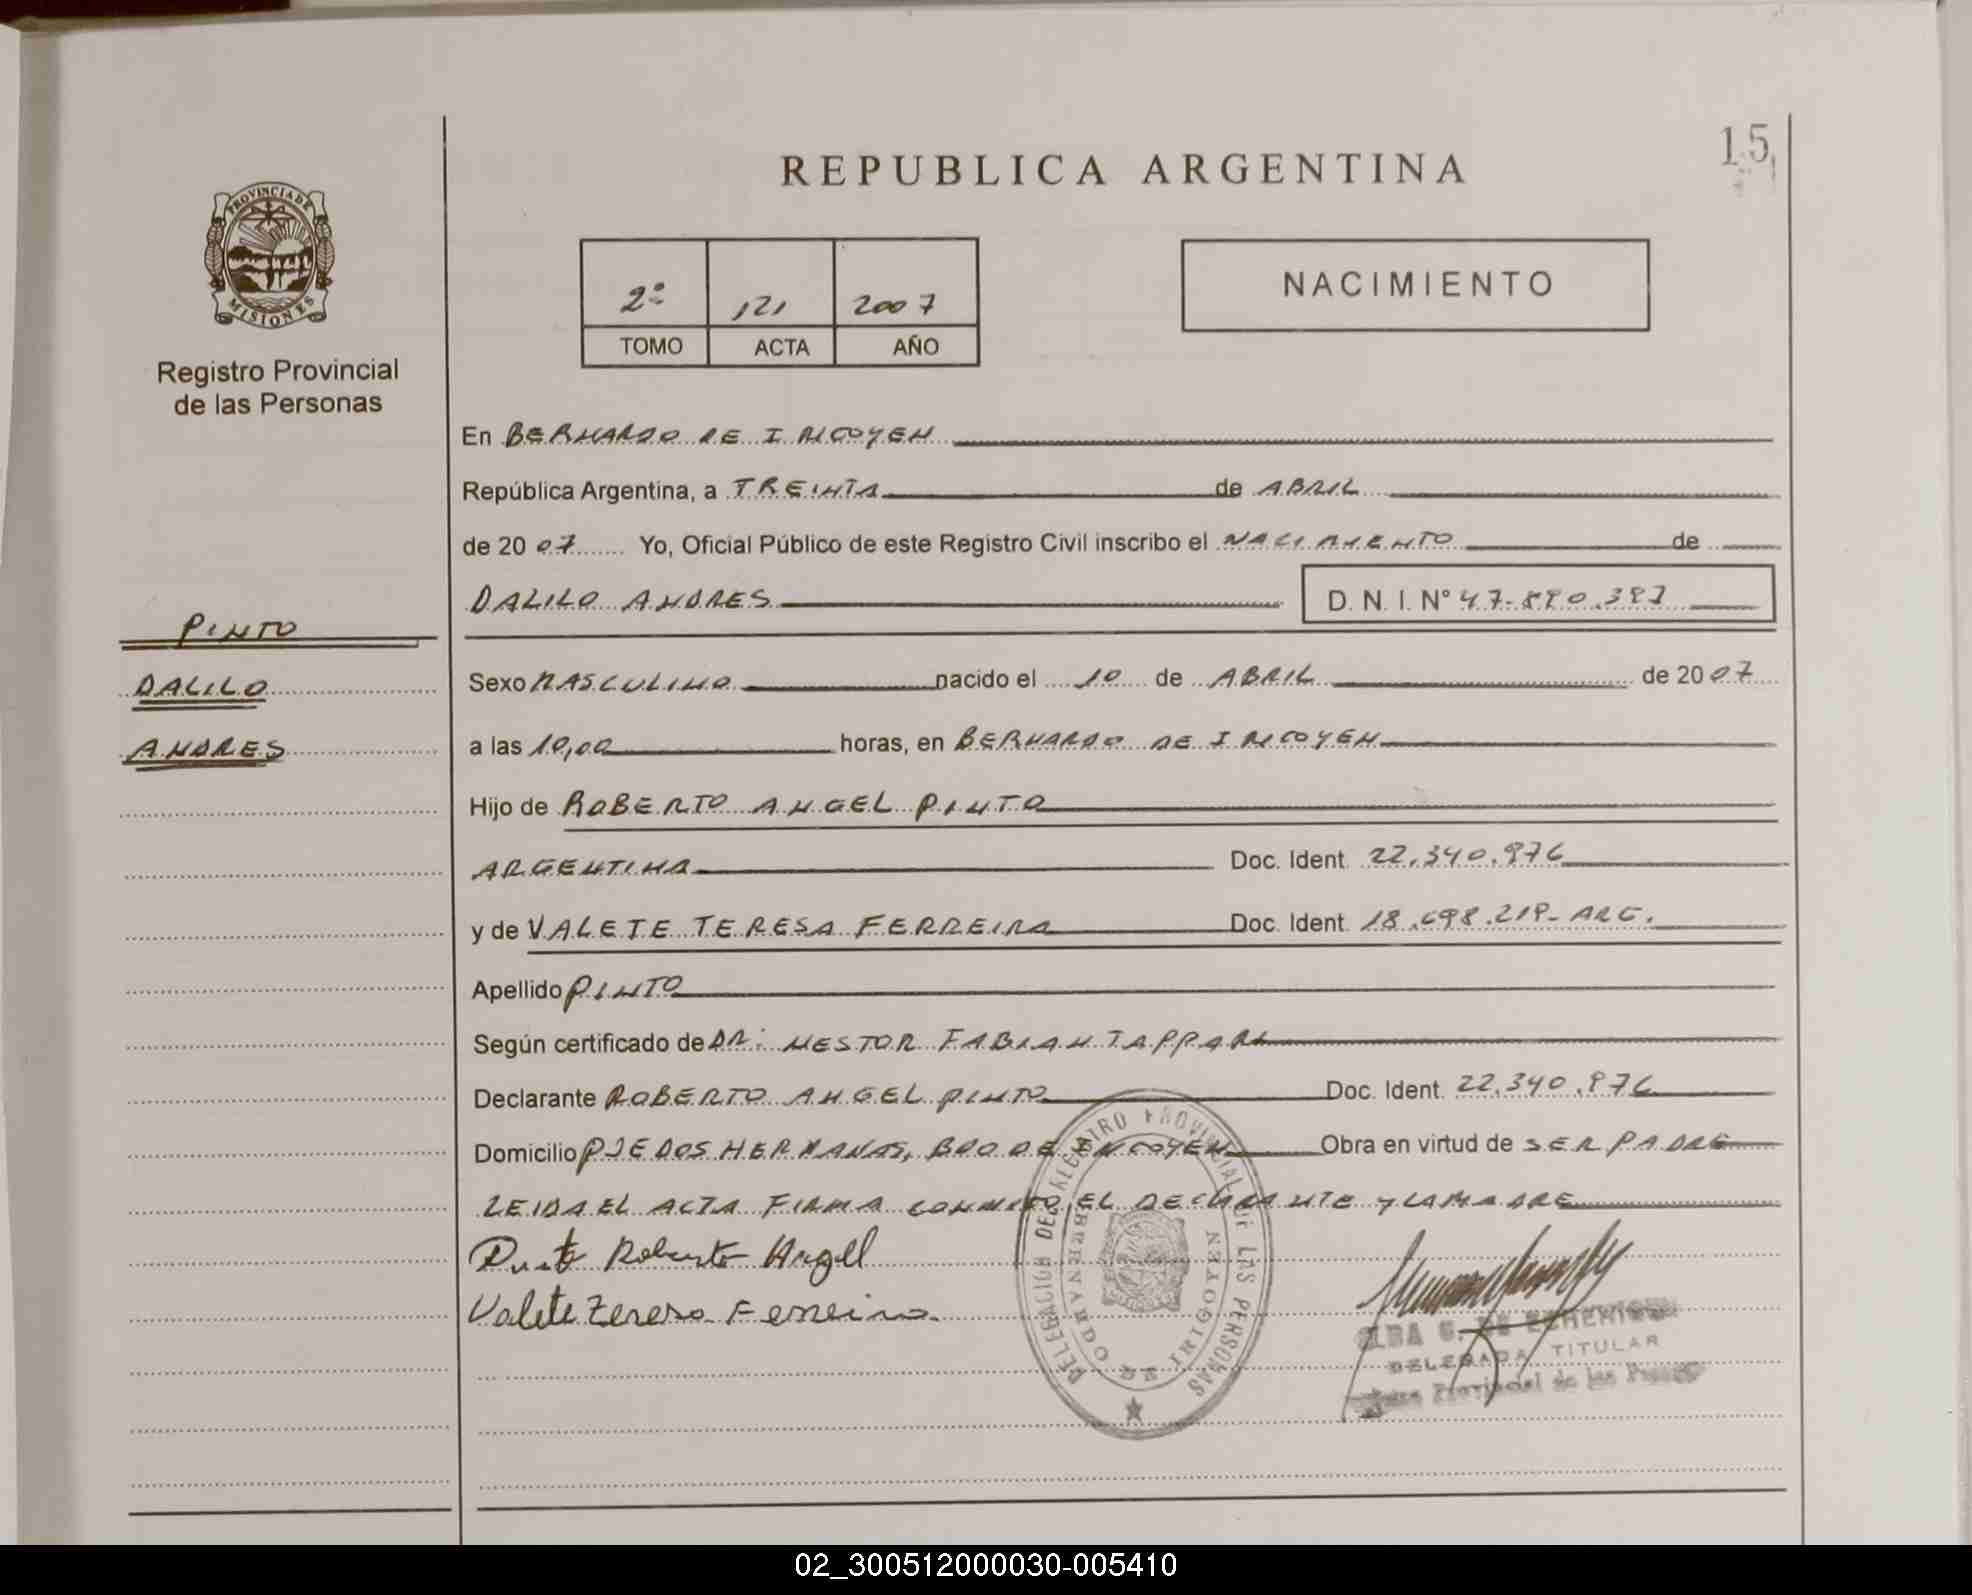 REPUBLICA ARGENTINA
15
PROVINCIA DE
MISIONES
Registro Provincial
de las Personas
2º 121 2007
TOMO ACTA AÑO
NACIMIENTO
En BERNARDO DE IRIGOYEN
República Argentina, a TREINTA de ABRIL
de 2007 Yo, Oficial Público de este Registro Civil inscribo el NACIMIENTO de
DALILO ANDRES D. N. I. Nº
PINTO
DALILO
ANDRES
Sexo MASCULINO nacido el 10 de ABRIL de 2007
a las 10,00 horas, en BERNARDO DE IRIGOYEN
Hijo de ROBERTO ANGEL PINTO
ARGENTINA Doc. Ident. 22.340.976
y de VALETE TERESA FERREIRA Doc. Ident. 18.698.219- ARG.
Apellido PINTO
Según certificado de DR: NESTOR FABIAN TAPPARI
Declarante ROBERTO ANGEL PINTO Doc. Ident. 22.340.976
Domicilio PJE DOS HERMANAS, BDO DE IRIGOYEN Obra en virtud de SER PADRE
LEIDA EL ACTA FIRMA CONMIGO, EL DECLARANTE Y LA MADRE
Pinto Roberto Angel
Valete Teresa Ferreira.
DELEGACION DEL REGISTRO PROVINCIAL DE LAS PERSONAS
BERNARDO DE IRIGOYEN
DELEGADA TITULAR
Provincial de las
02_300512000030-005410